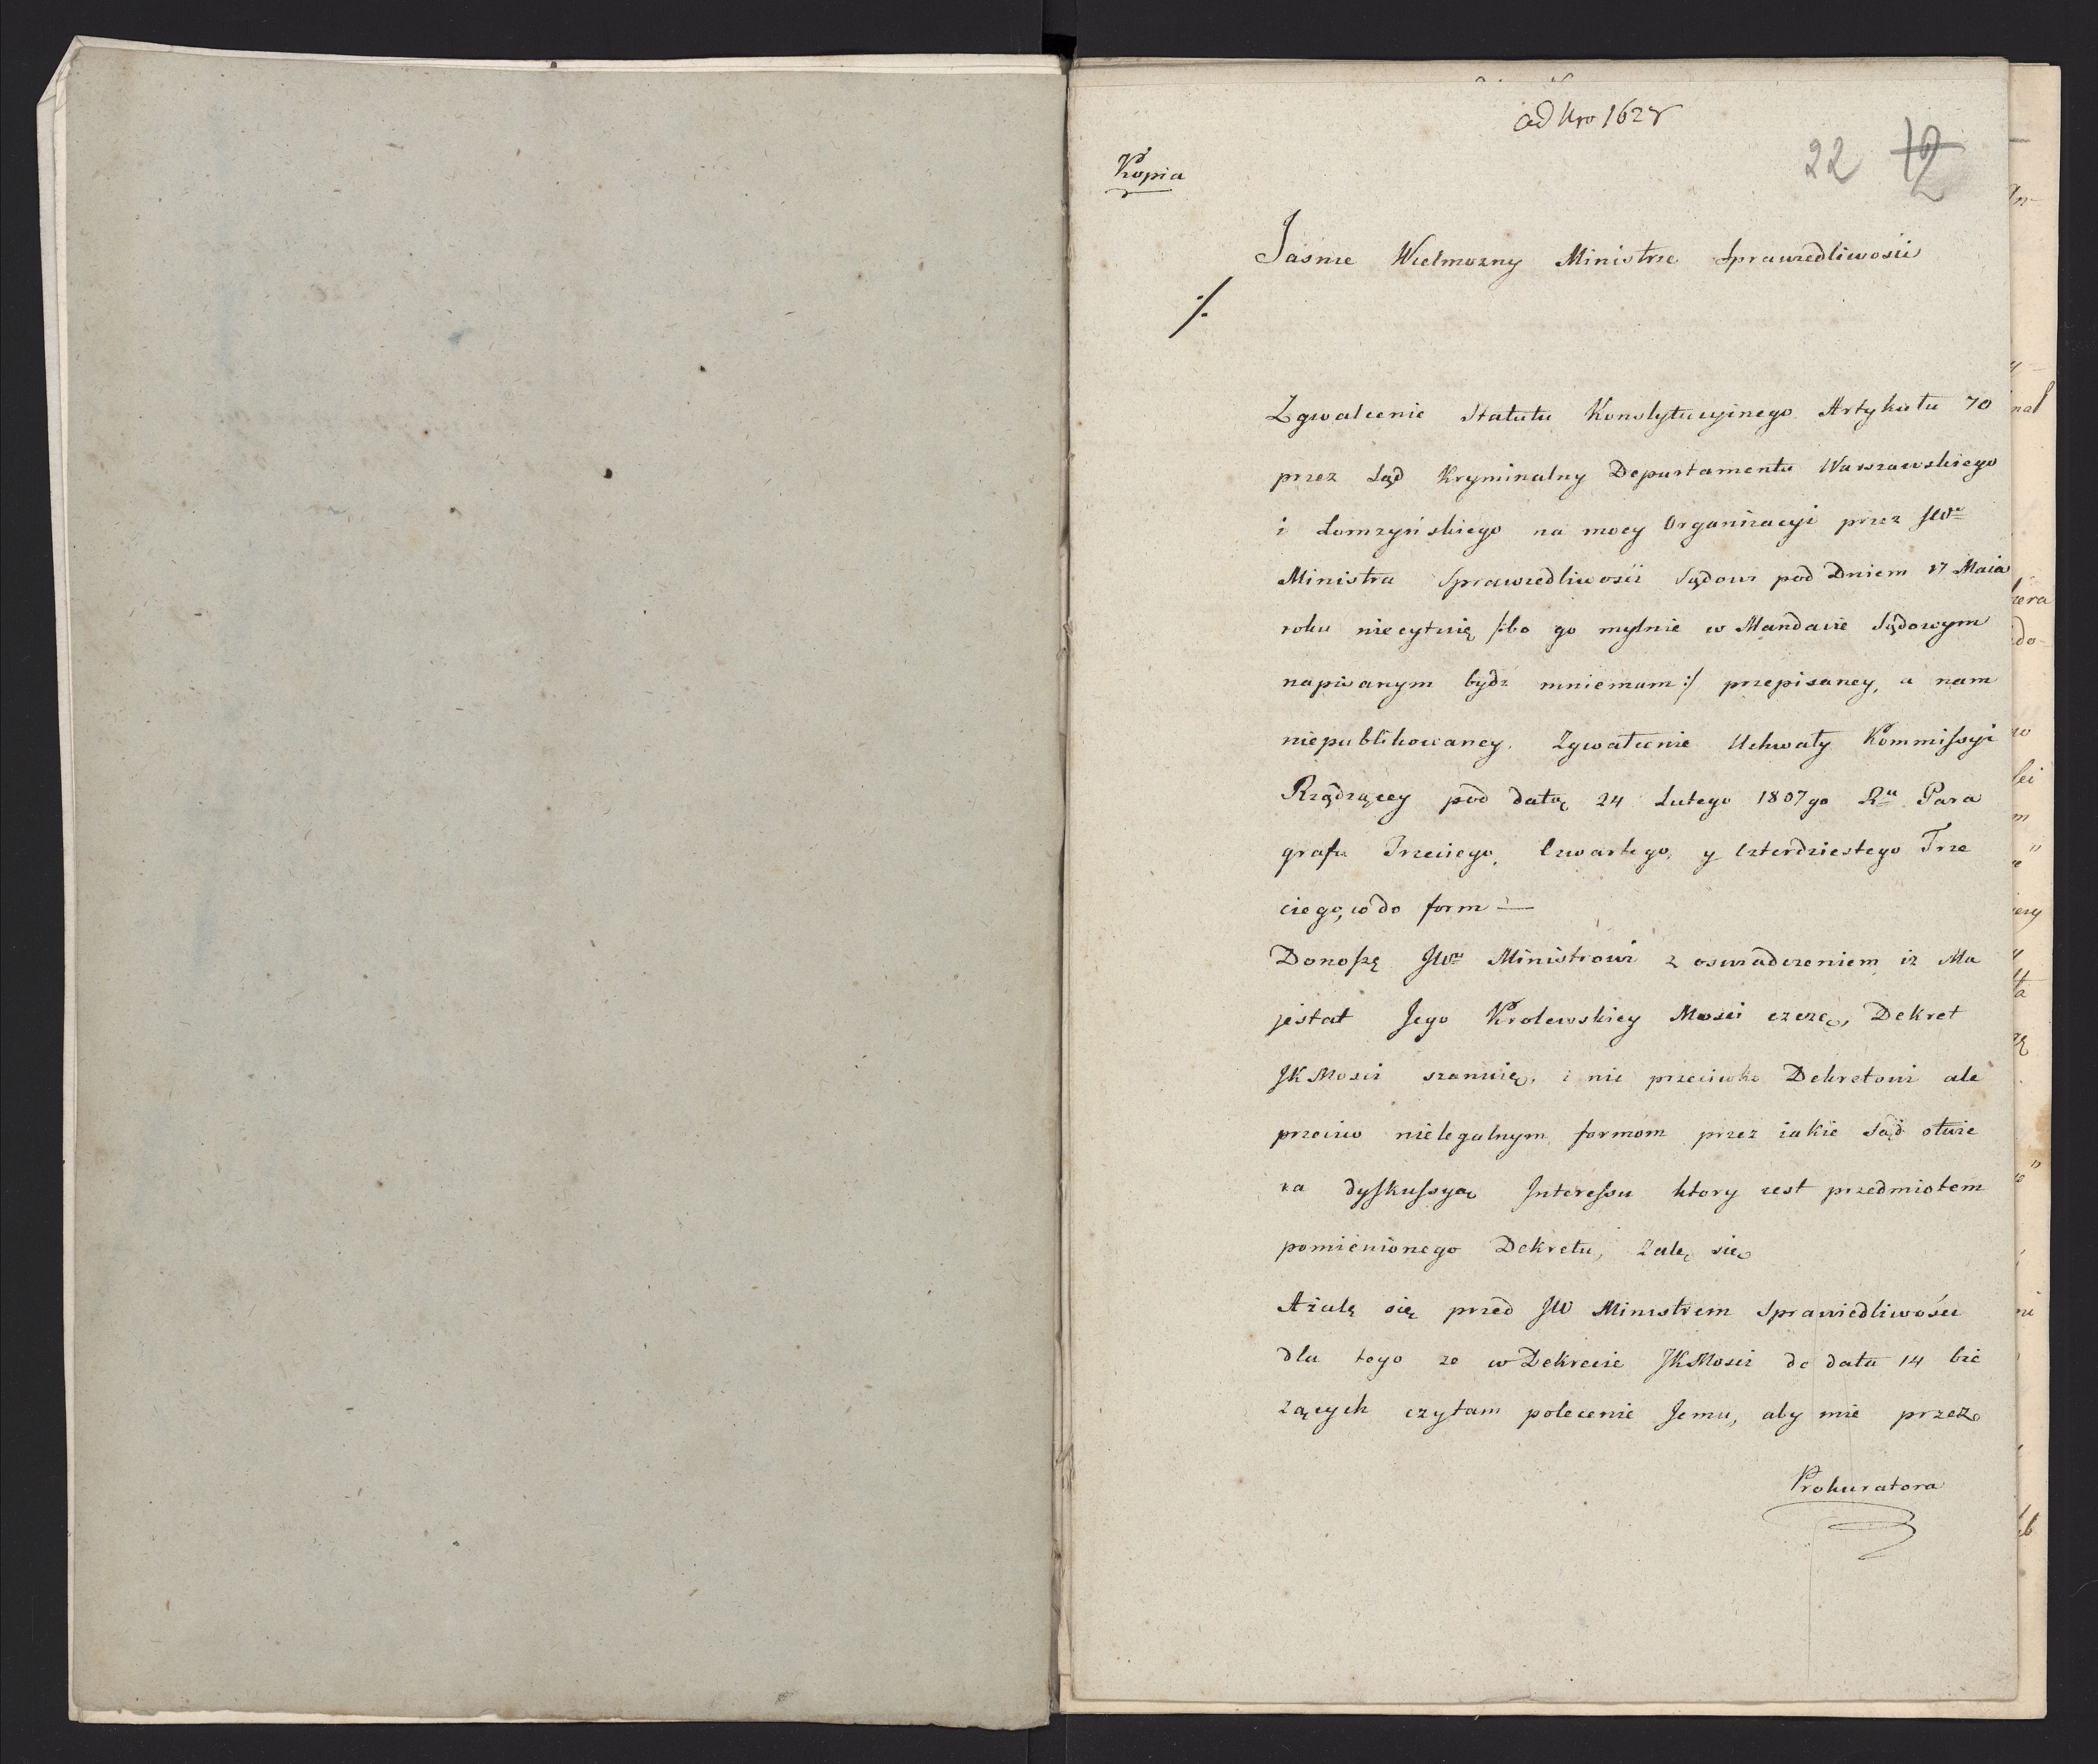 ad Nro 1628
22 12
Kopia
Jaśnie Wielmozny Ministrze Sprawiedliwości
./.
Zgwalcenie Statutu Konstytucyinego Artykułu 70
przez Sąd Kryminalny Departamentu Warszawskiego
i Łomzyńskiego na mocy Organizacyi przez JWo
Ministra Sprawiedliwości Sądowi pod Dniem 17 Maia
roku niecytuię /:bo go mylnie w Mandacie Sądowym
napisanym bydź mniemam:/ przepisaney, a nam
niepublikowaney. Zgwałcenie Uchwały Kommissyi
Rządzącey pod datą 24 Lutego 1807go Ru Para
grafu Trzeciego, Czwartego, y Czterdziestego Trze
ciego, co do form —
Donoszę JWu Ministrowi z oswiadczeniem iz Ma
jestat Jego Krolewskiey Mosci czczę, Dekret
JKMosci szanuię, i nie przeciwko Dekretowi ale
przeciw nielegalnym formom przez iakie Sąd otwie
ra dyskussyą Interessu ktory iest przedmiotem
pomienionego Dekretu, zalę się
A żalę się przed JW Ministrem Sprawiedliwości
dla tego ze w Dekrecie JKMosci de data 14 bie
zących czytam polecenie Jemu, aby mie przez
Prokuratora